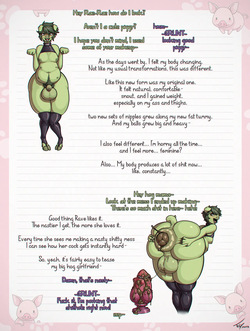 Hey Rea-Rea how do I look?
Aren't I a cute piggy?
I hope you don't mind, I used some of your makeup~
hnnn~
~GRUNT~
looking good
piggy~
As the days went by, I felt my body changing.
Not like my usual transformations, this was different.
Like this new form was my original one.
It felt natural, comfortable
snout, and I gained weight,
especially on my ass and thighs.
two new sets of nipples grew along my new fat tummy.
And my balls grew big and heavy~
I also feel different... I'm horny all the time...
and I feel more... feminine?
Also... My body produces a lot of shit now...
like, constantly...
Hey hog mama~
Look at the mess I ended up making~
There's so much shit in here~ hehe!
Good thing Rose likes it.
The nastier I get, the more she loves it.
Every time she sees me making a nasty shitty mess
I can see how her cock gets instantly hard~
So, yeah, it's fairly easy to tease
my big hog girlfriend~
Damn, that's nasty~
~GRUNT~
Fuck it, I'm pushing that
shithole right now!